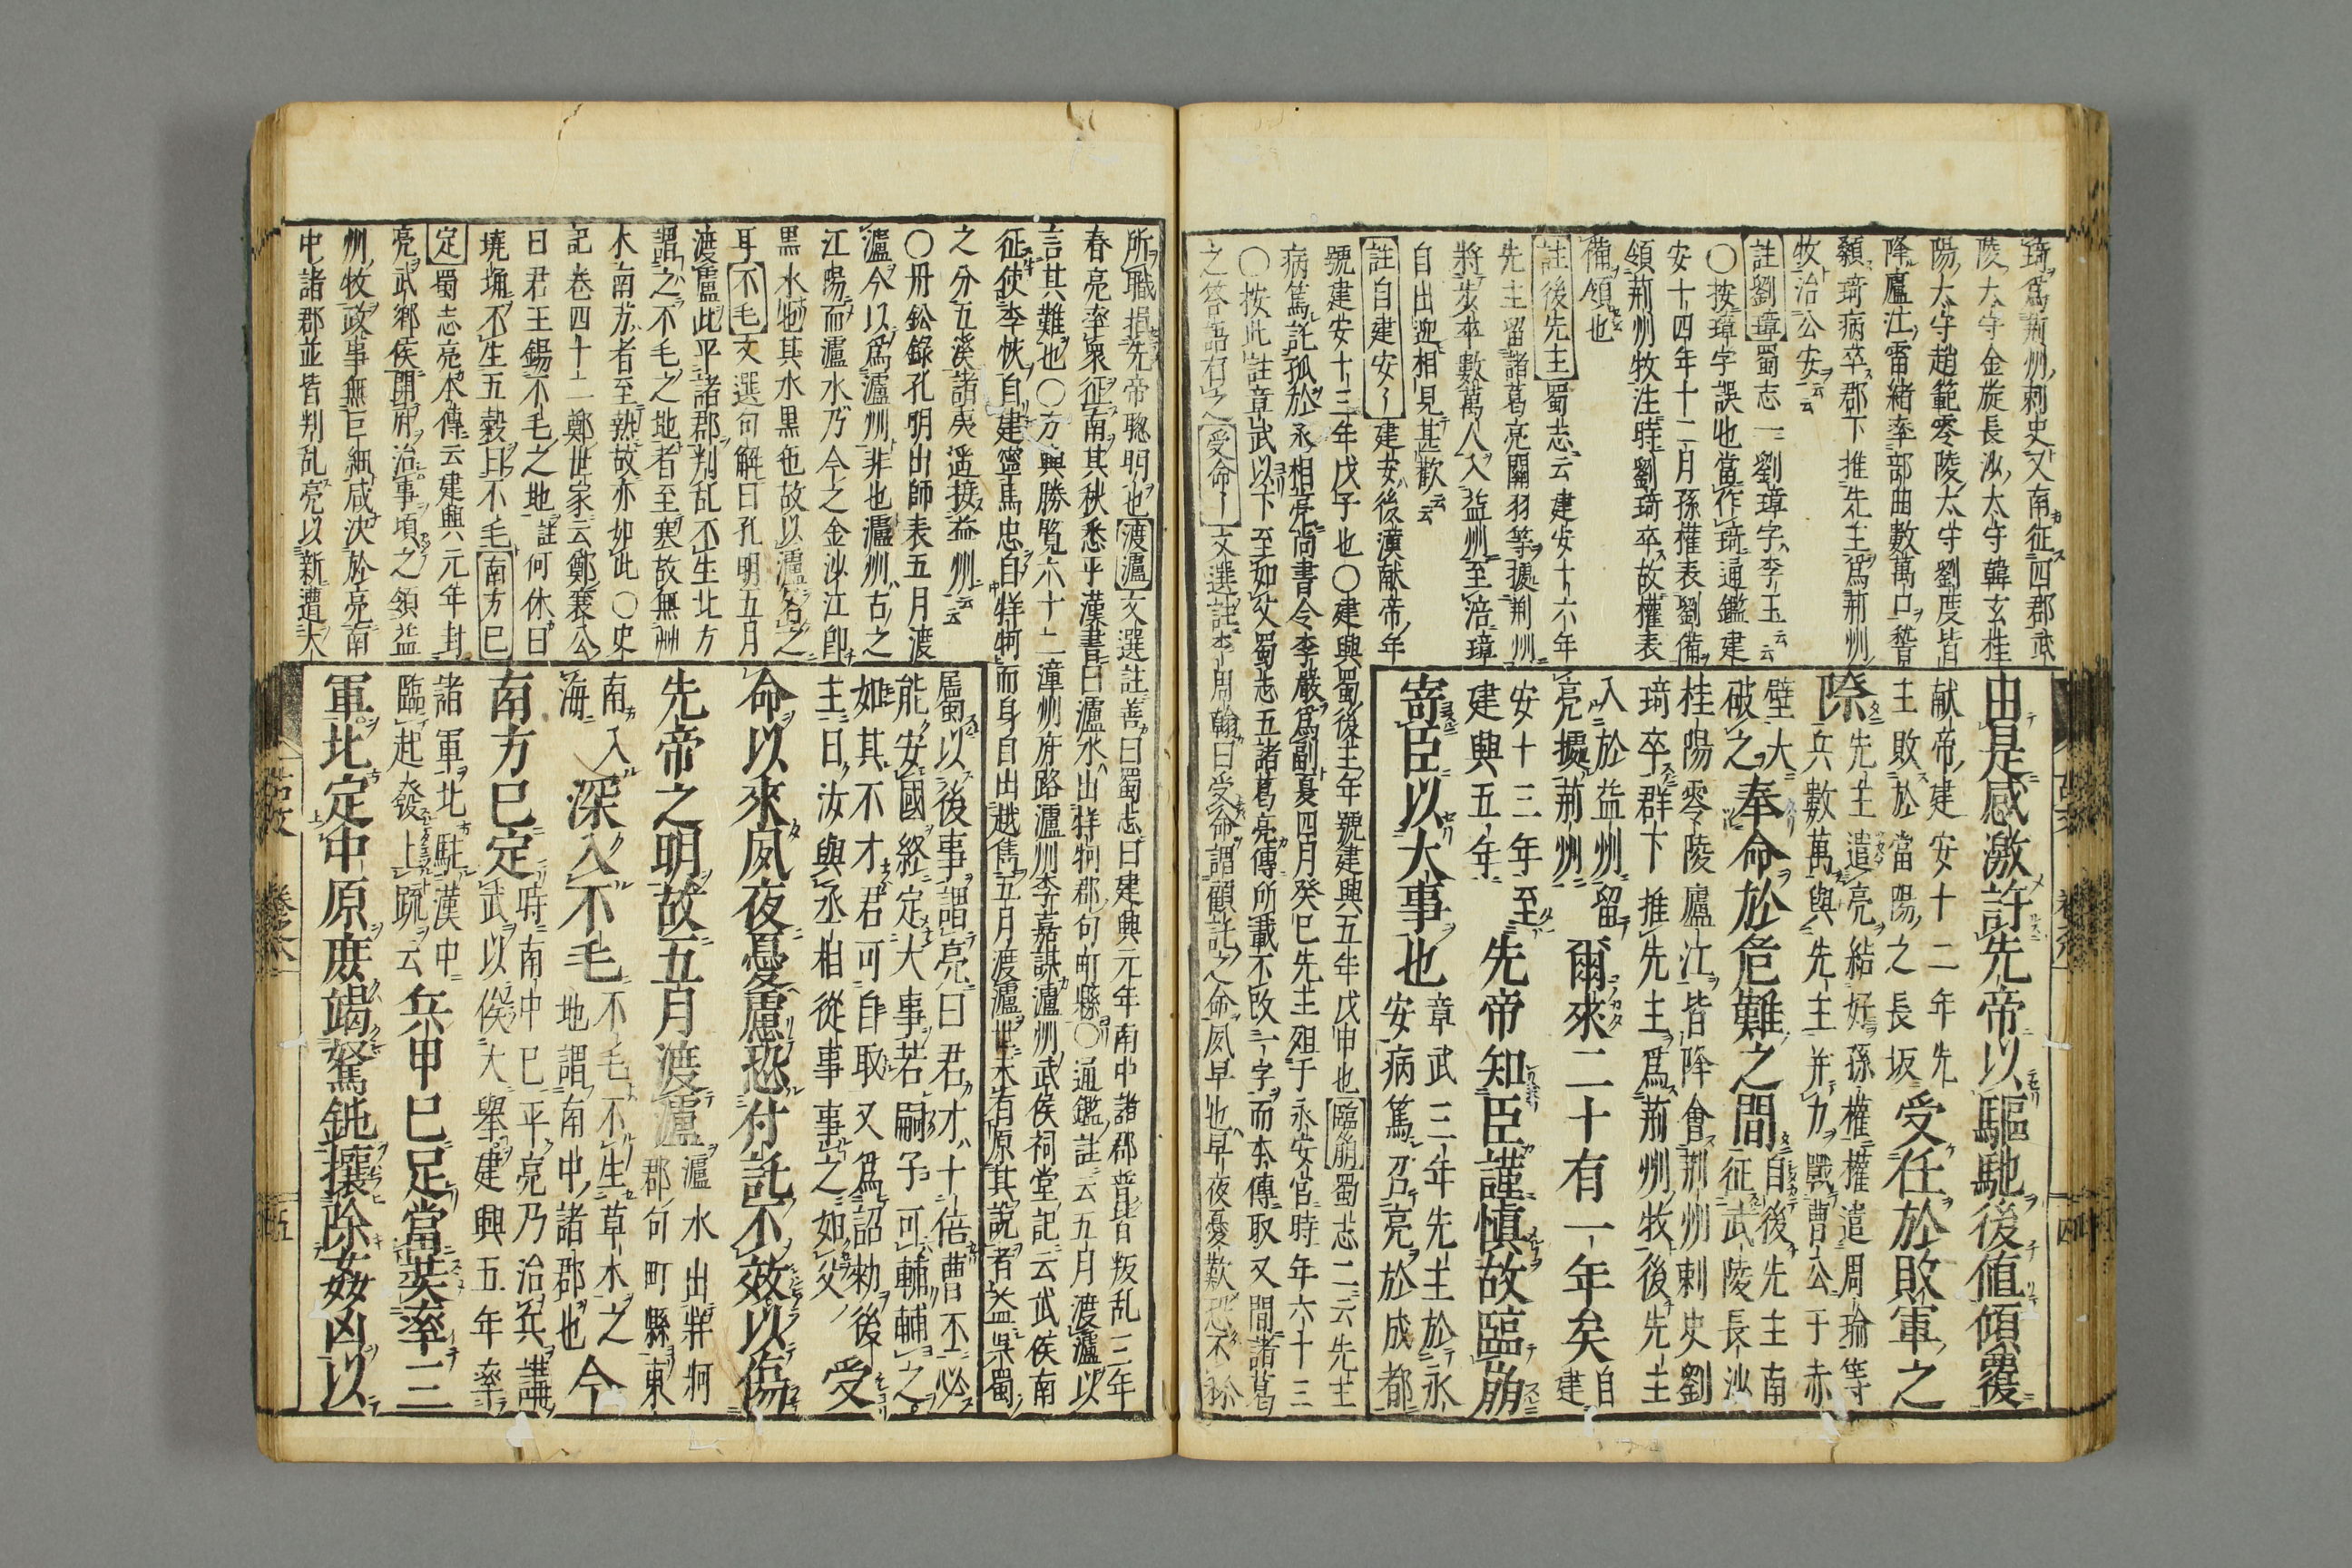 琦爲荊州刺史又南征四郡武
陵大守金旋長沙大守韓玄桂
陽大守趙範零陵大守劉度皆
降廬江雷緒率部曲數萬口稽
顙琦病卒郡下推先主爲荊州
牧治公安云云
註劉璋蜀志一劉璋字季玉云云
○按璋字誤也當作琦通鑑建
安十四年十二月孫權表劉備
領荊州牧注時劉琦卒故權表
備領也
註後先主蜀志云建安十六年
先主留諸葛亮關羽等據荊州
將步卒數萬人入益州至涪璋
自出迎相見甚歡云云
註自建安〻建安後漢献帝年
號建安十三年戊子也○建興蜀後主年號建興五年戊申也臨崩蜀志二云先主
病篤託孤於丞相亮尚書令李嚴爲副夏四月癸巳先主殂于永安宮時年六十三
○按此註章武以下至如父蜀志五諸葛亮傳所載不改一字而本傳取又間諸葛
之答語有之受命〻文選註李周翰曰受命謂顧託之命夙早也早夜憂歎恐不称
由是感激許先帝以驅馳後値傾覆
献帝建安十二年先
主敗於當陽之長坂受任於敗軍之
際先主遣亮結好孫權權遣周瑜等
兵數萬與先主并力戰曹公于赤
壁大
破之奉命於危難之間自後先主南
征武陵長沙
桂陽零陵廬江皆降會荊州刺史劉
琦卒群下推先主爲荊州牧後先主
入於益州留
亮據荊州爾來二十有一年矣自
建
安十三年至
建興五年先帝知臣謹慎故臨崩
寄臣以大事也章武三年先主於永
安病篤召亮於成都
所職損先帝聰明也渡瀘文選註善曰蜀志曰建興元年南中諸郡並皆叛乱三年
春亮率衆征南其秋悉平漢書曰瀘水出牂牁郡句町縣○通鑑註云五月渡瀘以
言其難也○方輿勝覧六十二潼州府路瀘州李嘉謀瀘州武侯祠堂記云武侯南
征使李恢自建寧馬忠自牂牁而身自出越雋五月渡瀘世未有原其說者益呉蜀
之分五溪諸夷遥接益州云云
○丹鉛錄孔明出師表五月渡
瀘今以爲瀘州非也瀘州古之
江陽而瀘水乃今之金沙江卽
黒水也其水黒也故以瀘名之
耳不毛文選句解曰孔明五月
渡瀘此平諸郡判乱不生北方
謂之不毛之地者至寒故無艸
木南方者至熱故亦如此○史
記巻四十二鄭世家云鄭襄公
曰君王錫不毛之地註何休曰
墝埆不生五穀曰不毛南方已
定蜀志亮本傳云建興元年封
亮武郷侯開府治事頃之領益
州牧政事無巨細咸決於亮南
中諸郡並皆判乱亮以新遭大
屬以後事謂亮曰君才十倍曹丕必
能安國終定大事若嗣子可輔輔之
如其不才君可自取又爲詔勅後
主曰汝與丞相從事事之如父受
命以來夙夜憂慮恐付託不效以傷
先帝之明故五月渡瀘瀘水出牂牁
郡句町縣東
南入
海深入不毛不毛不生草木之
地謂南中諸郡也今
南方已定時南中已平亮乃治兵講
武以俟大擧建興五年率
諸軍北駐漢中
臨起發上疏云兵甲已足當奬率三
軍北定中原庶竭駑鈍攘除姦凶以